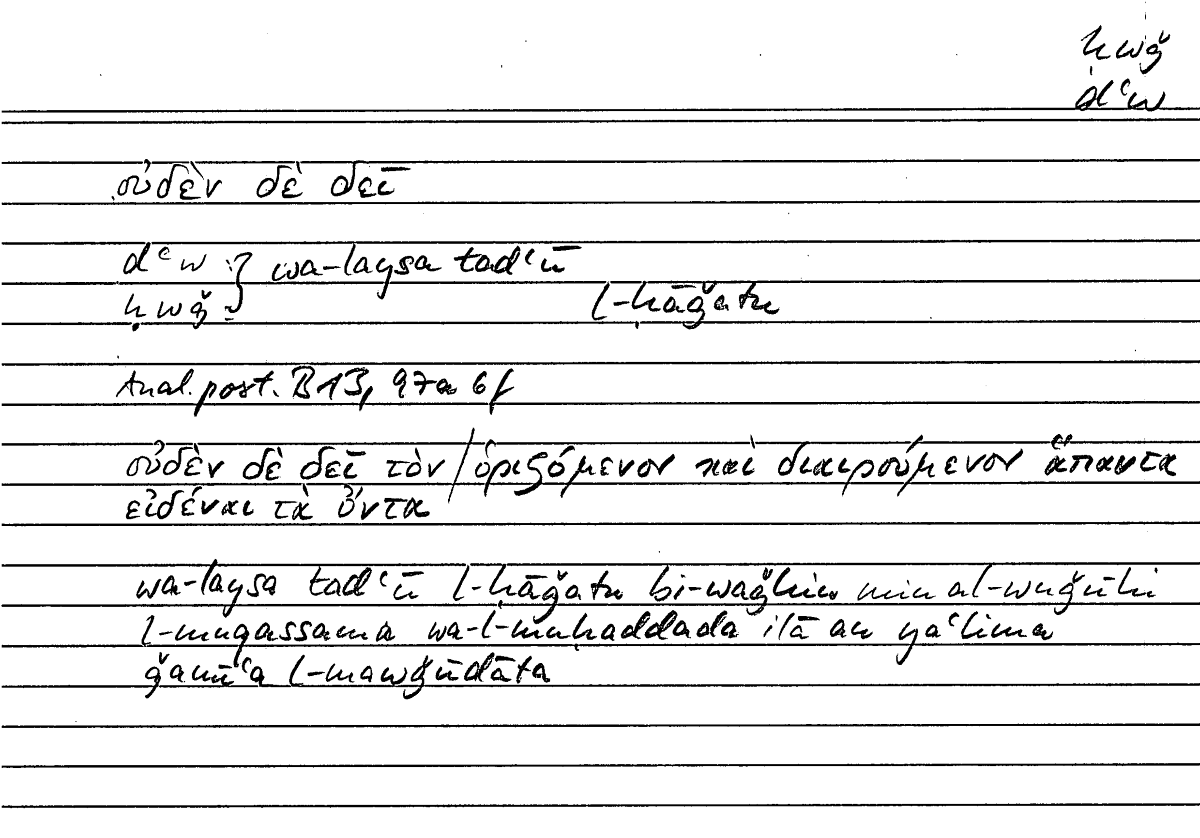 ḥwǧ
dʿw
οὐδὲν δὲ δεῖ
dʿw :} wa-laysa tadʿū
ḥwǧ :} l-ḥāǧatu
Anal. post. B 13, 97a 6f
οὐδὲν δὲ δεῖ τὸν / ὁριζόμενον καὶ διαιρούμενον ἅπαντα
εἰδέναι τὰ ὄντα
wa-laysa tadʿū l-ḥāǧatu bi-waǧhin min al-wuǧūhi
l-muqassama wa-l-muḥaddada ilā an yaʿlima
ǧamīʿa l-mawǧūdāta